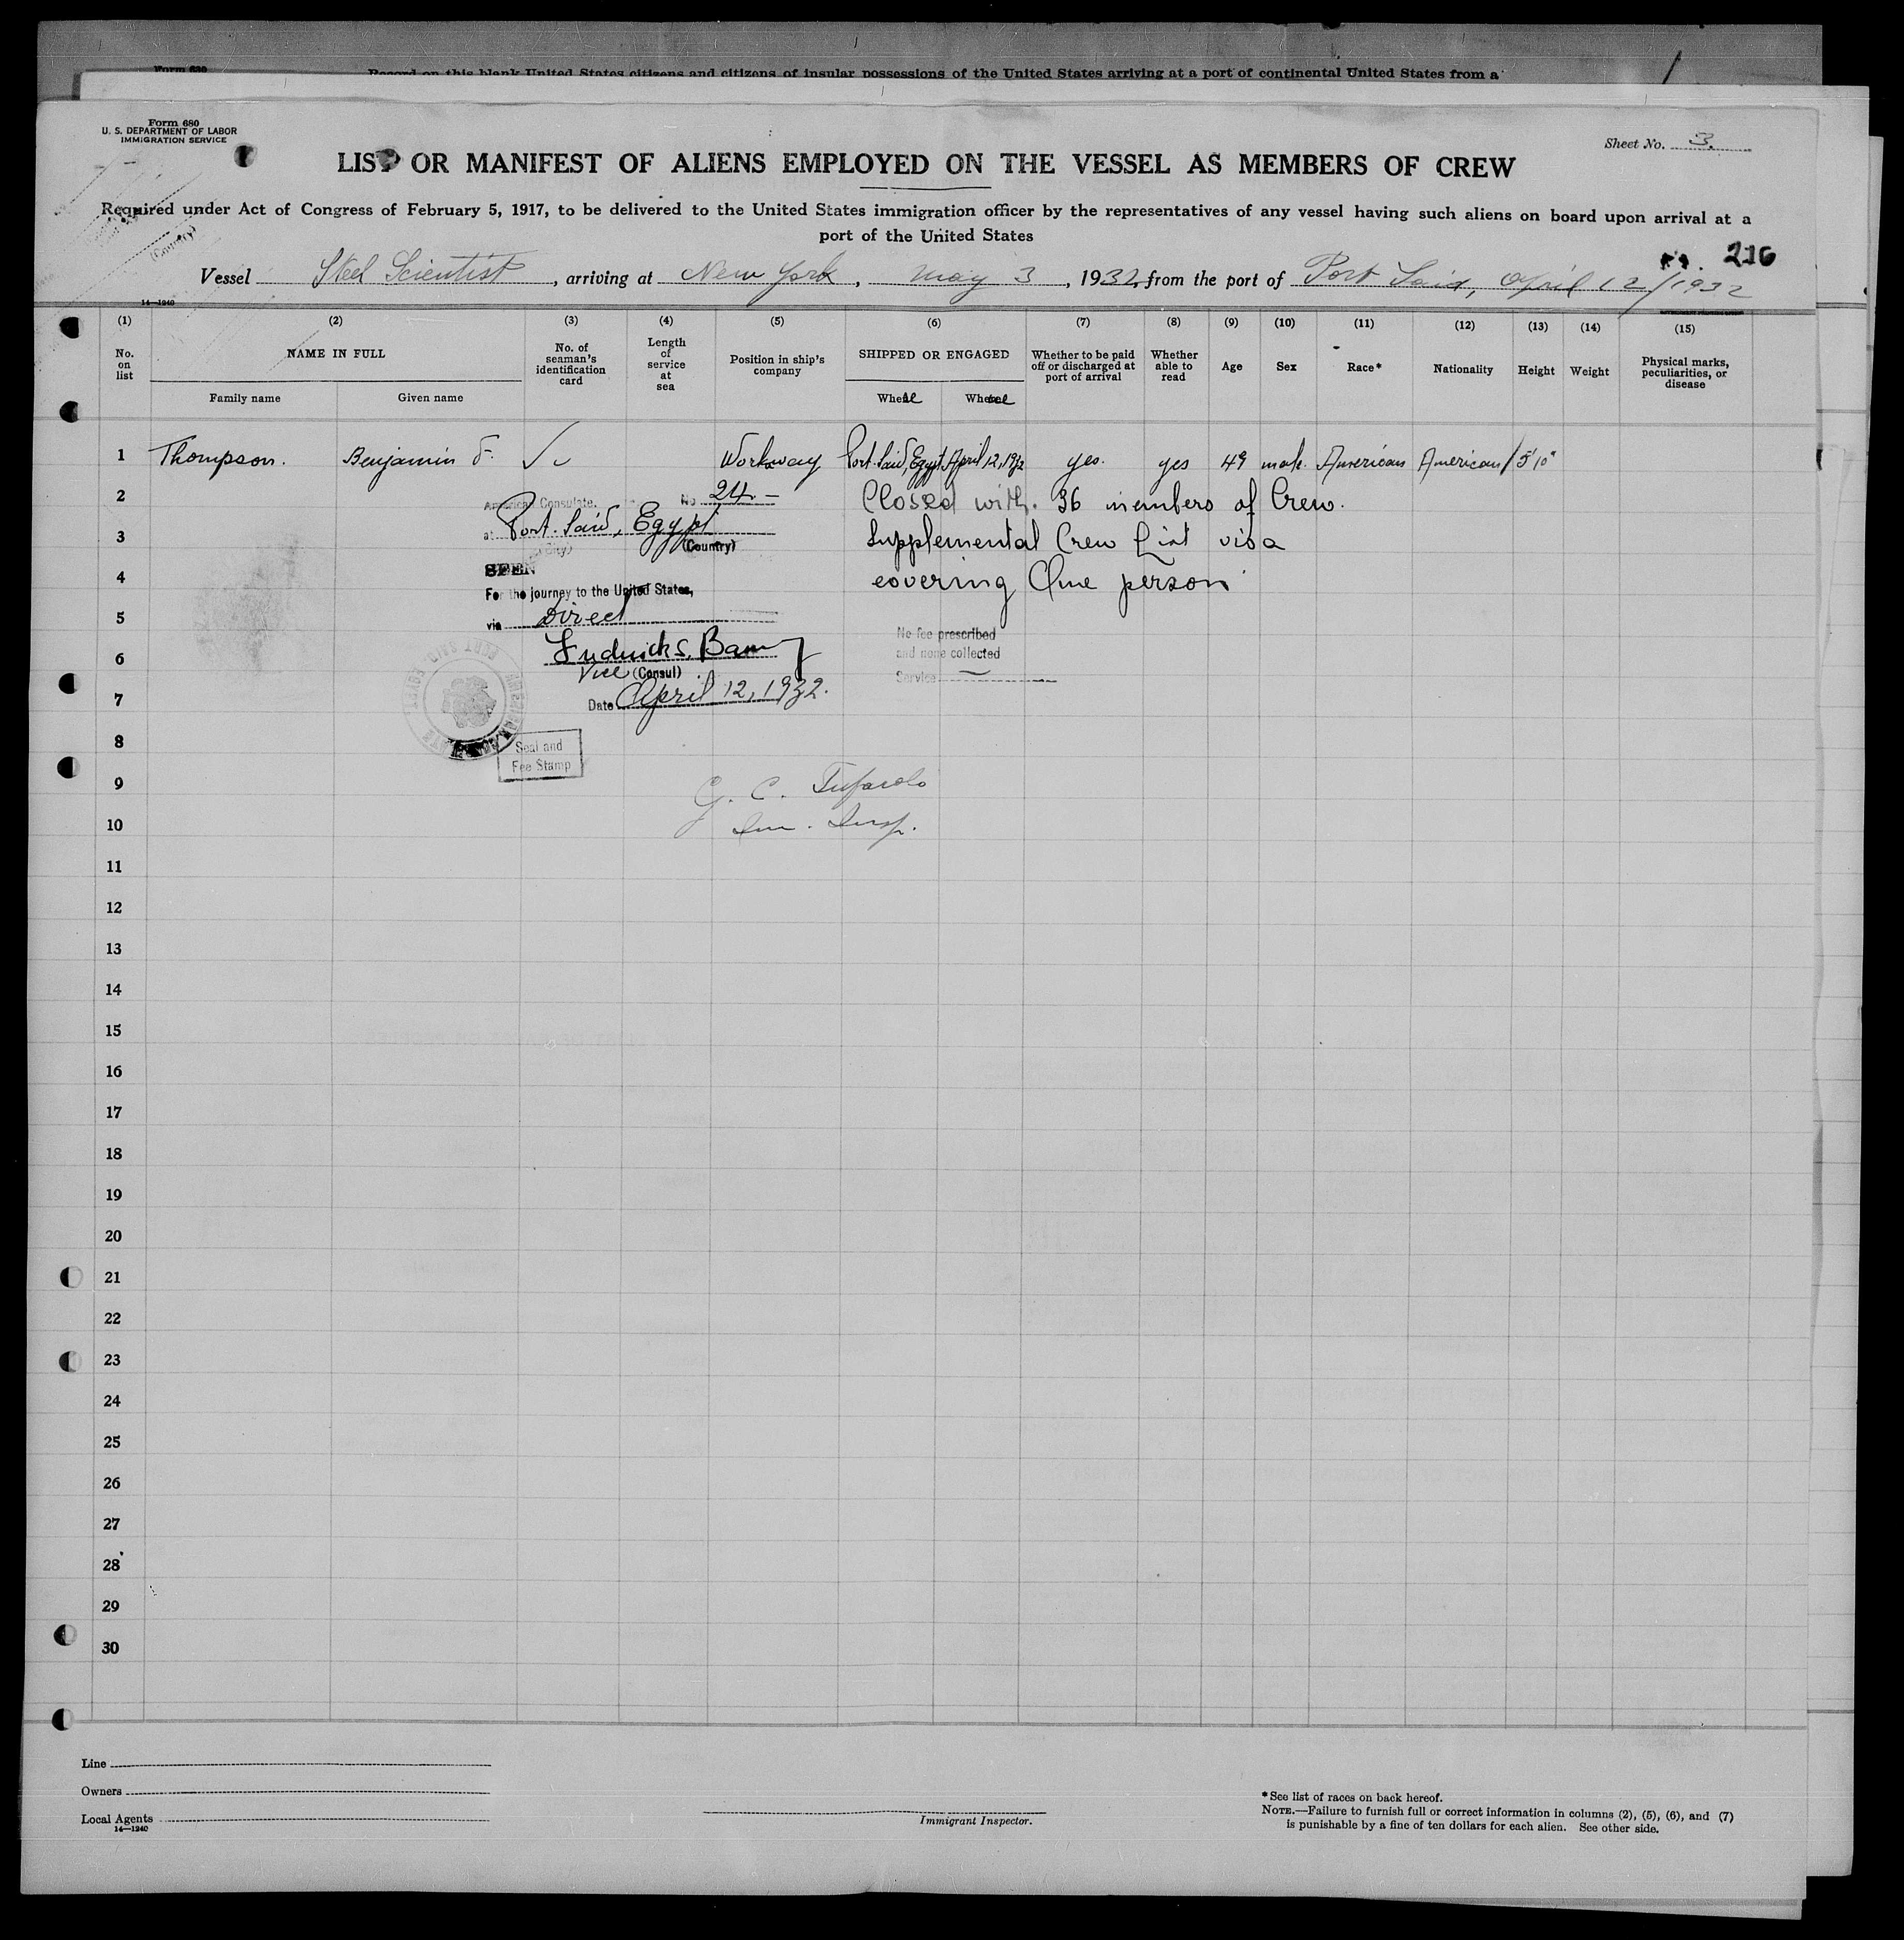 Form 630
Record on this blank United States citizens and citizens of insular possessions of the United States arriving at a port of continental United States from a
Form 680
U. S. DEPARTMENT OF LABOR
IMMIGRATION SERVICE
Sheet No. 3.
LIST OR MANIFEST OF ALIENS EMPLOYED ON THE VESSEL AS MEMBERS OF CREW
Required under Act of Congress of February 5, 1917, to be delivered to the United States immigration officer by the representatives of any vessel having such aliens on board upon arrival at a
port of the United States
216
Vessel Steel Scientist, arriving at New York, May 3, 1932, from the port of Port Said, April 12/1932
14—1240
(1) (2) (3) (4) (5) (6) (7) (8) (9) (10) (11) (12) (13) (14) (15)
No. on list
NAME IN FULL
Family name
Given name
No. of seaman's identification card
Length of service at sea
Position in ship's company
SHIPPED OR ENGAGED
When
Where
Whether to be paid off or discharged at port of arrival
Whether able to read
Age
Sex
Race*
Nationality
Height
Weight
Physical marks, peculiarities, or disease
1 Thompson. Benjamin Workaway Port Said, Egypt April 12, 1932 yes. yes 49 male. American American 5'10"
2
American Consulate. No 24.—
Closed with. 36 members of Crew.
3
at Port Said, Egypt
(City) (Country)
Supplemental Crew List visa
4
SEEN
covering One person
For the journey to the United States,
5
via Direct
No fee prescribed
and none collected
Service —
6
Vice (Consul)
7
Date April 12, 1932.
8
Seal and
Fee Stamp
9
G. C.
10
Im. Insp.
11
12
13
14
15
16
17
18
19
20
21
22
23
24
25
26
27
28
29
30
Line
Owners
Local Agents
14—1240
Immigrant Inspector.
*See list of races on back hereof.
NOTE.—Failure to furnish full or correct information in columns (2), (5), (6), and (7)
is punishable by a fine of ten dollars for each alien. See other side.